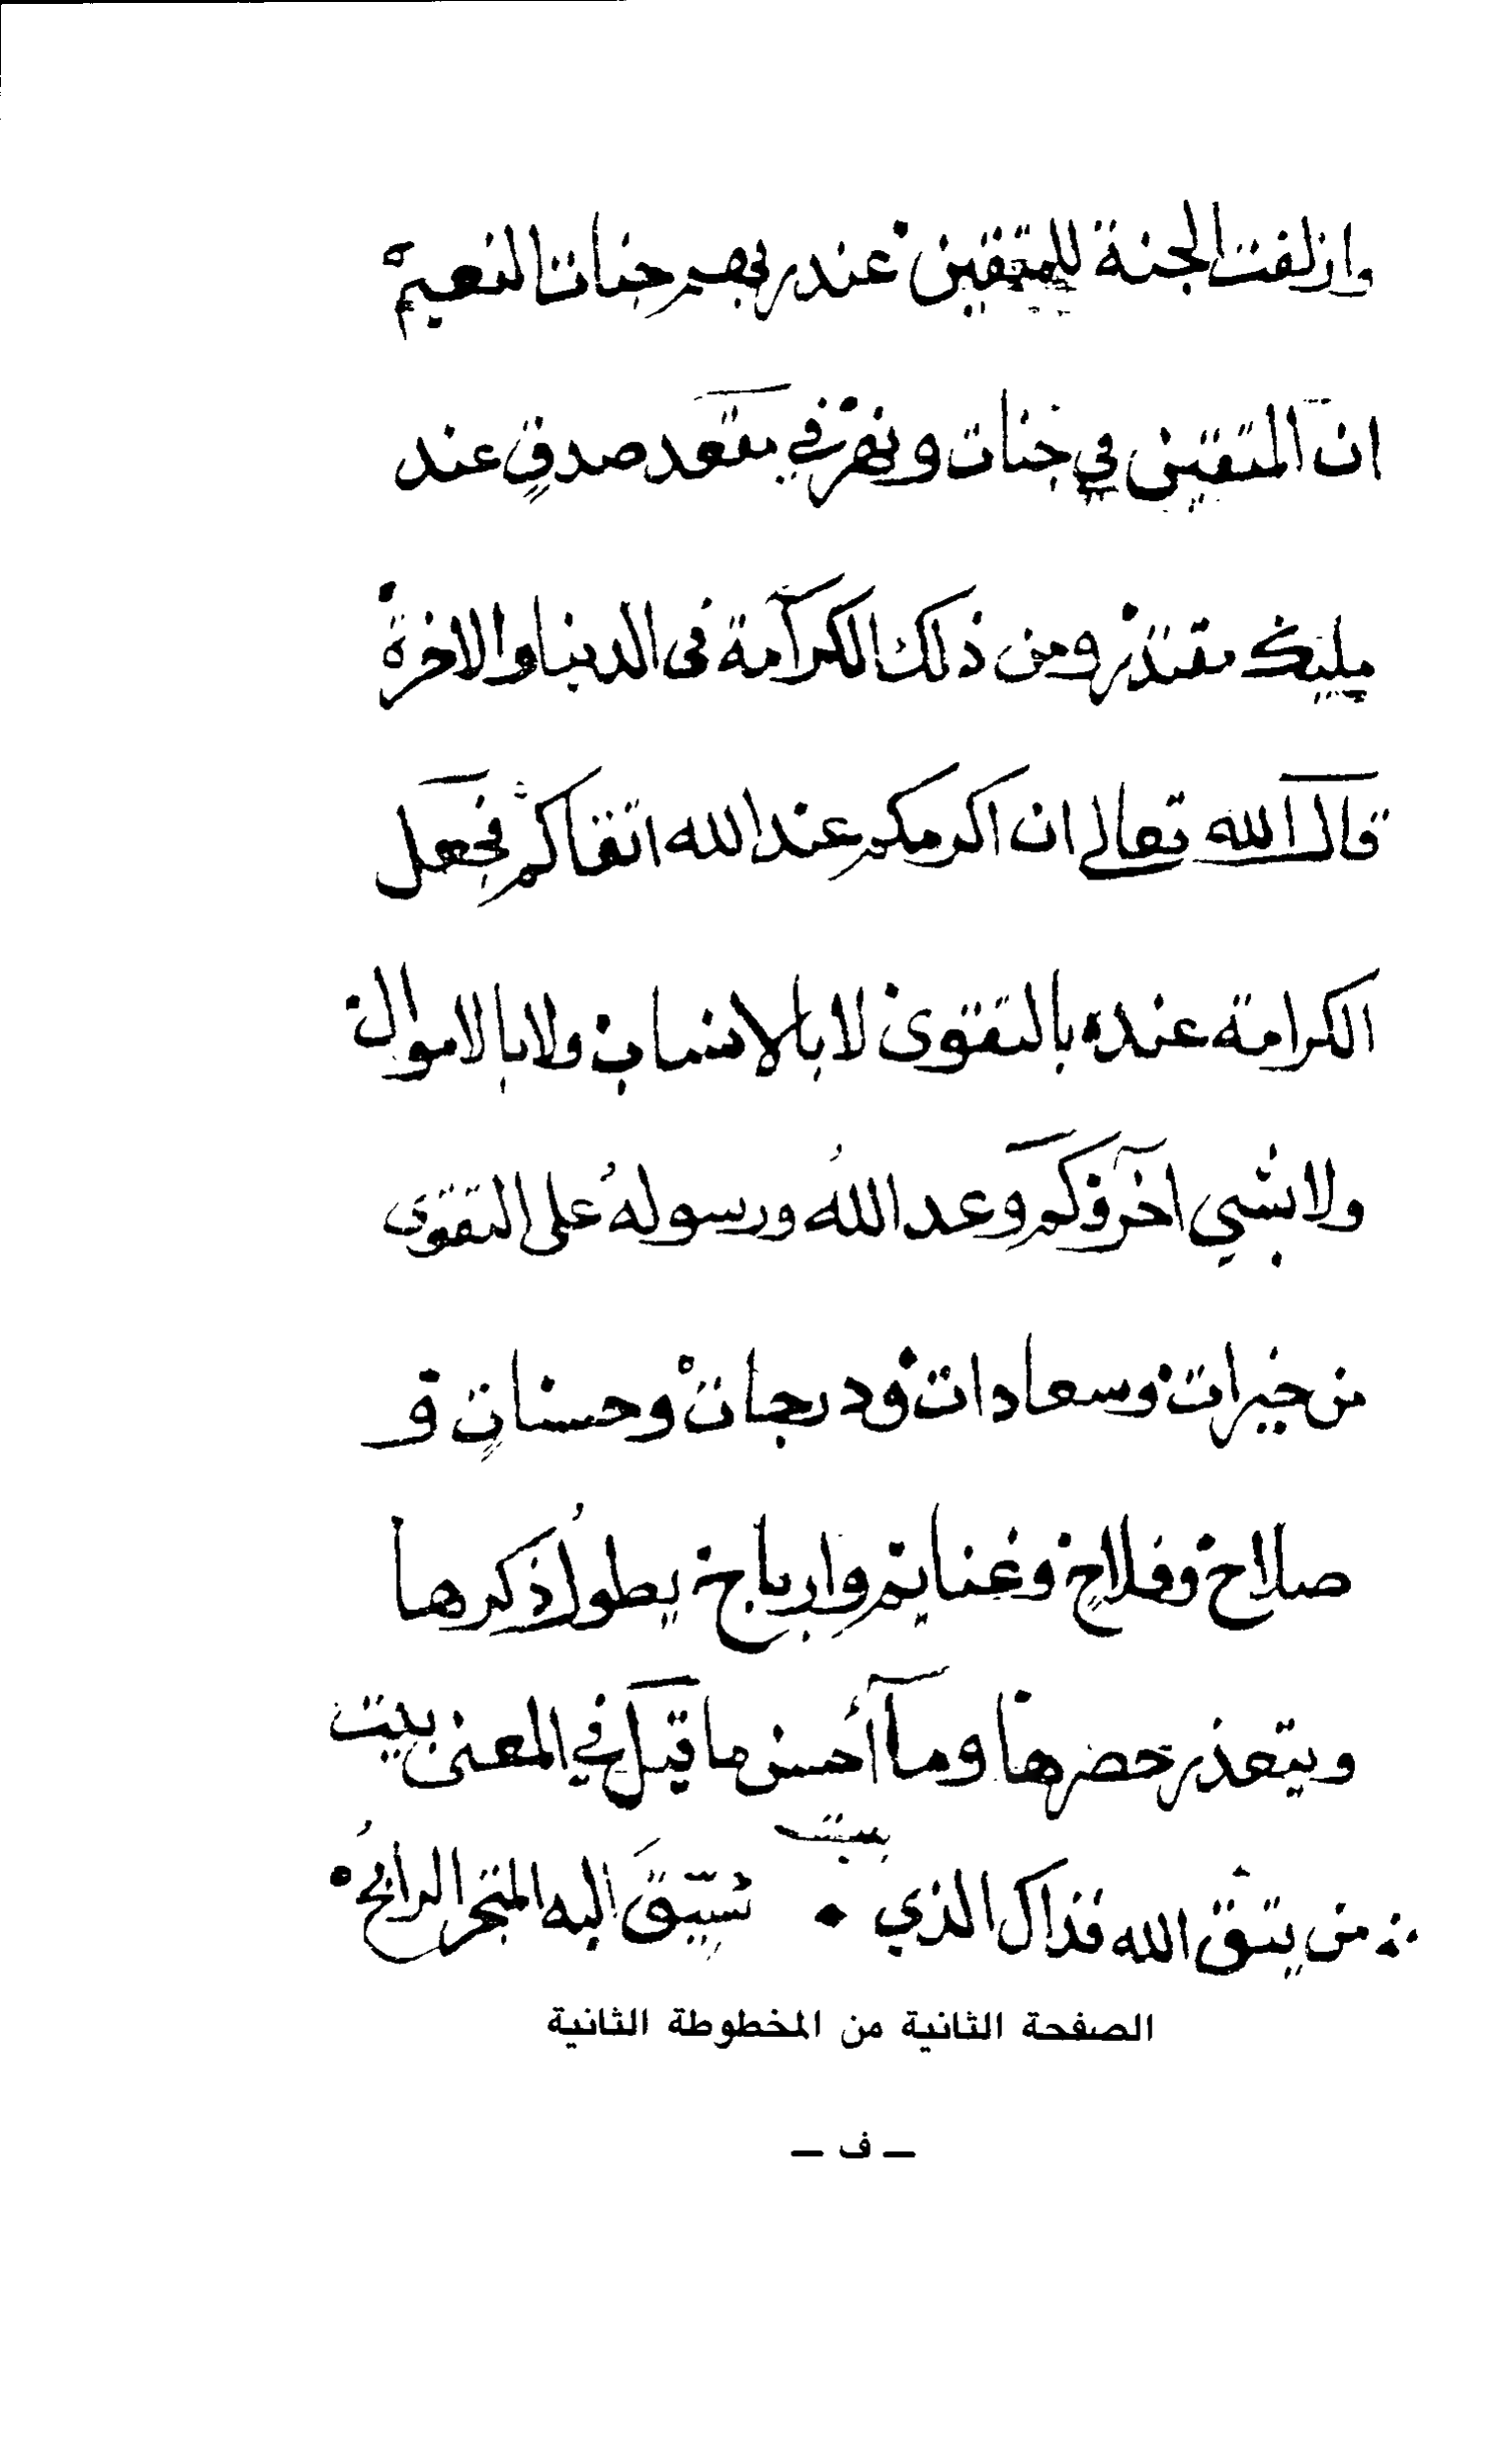 وازلفت الجنة للمتقين عند ربهم جنات النعيم
ان المتقين في جنات ونهر في مقعد صدقٍ عند
مليك مقتدر ومن ذلك الكرامة في الدنيا والاخرة
قال الله تعالى ان اكرمكم عند الله اتقاكم فجعل
الكرامة عنده بالتقوى لا بالانساب ولا بالاموال
ولا بشي اخر وكم وعد اللهُ ورسولهُ على التقوى
من خيرات وسعادات ودرجات وحسناتٍ و
صلاح وفلاحٍ وغنايم وارباح يطولُ ذكرها
ويتعذر حصرها وما أحسن ما قيل في المعنى بيت
بيت
من يتق الله فذاك الذي • سيق اليه المتجر الرابحُ
الصفحة الثانية من المخطوطة الثانية
— ف —